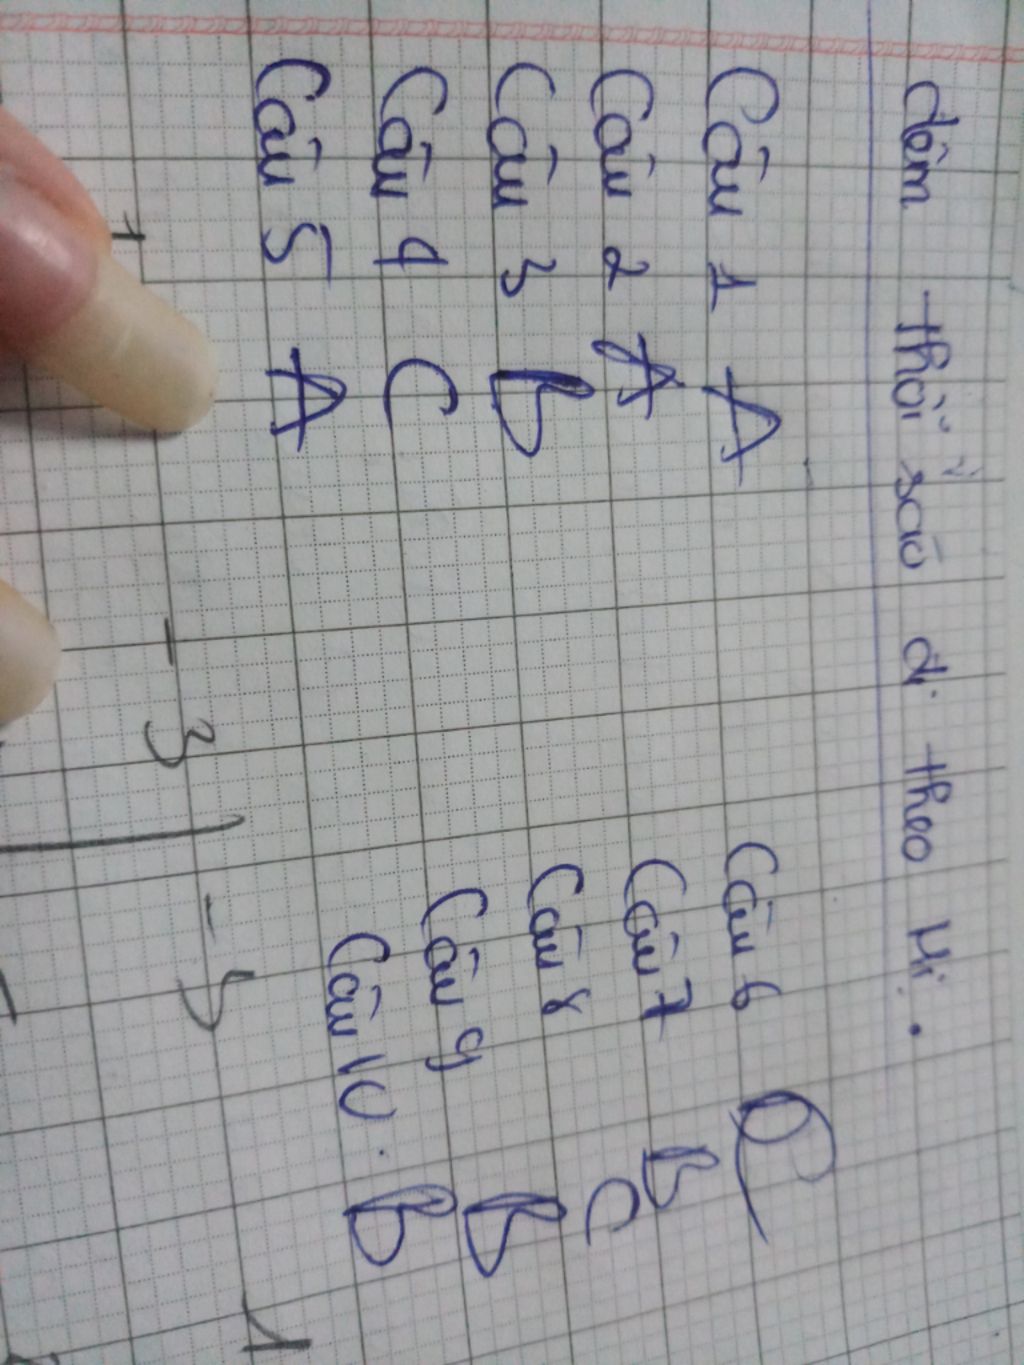 đêm thổi sáo đi theo Mị.
Câu 1 A
Câu 2 A
Câu 3 B
Câu 4 C
Câu 5 A
Câu 6
Câu 7 B
Câu 8 C
Câu 9 B
Câu 10. B
1 - 3 - 5 1